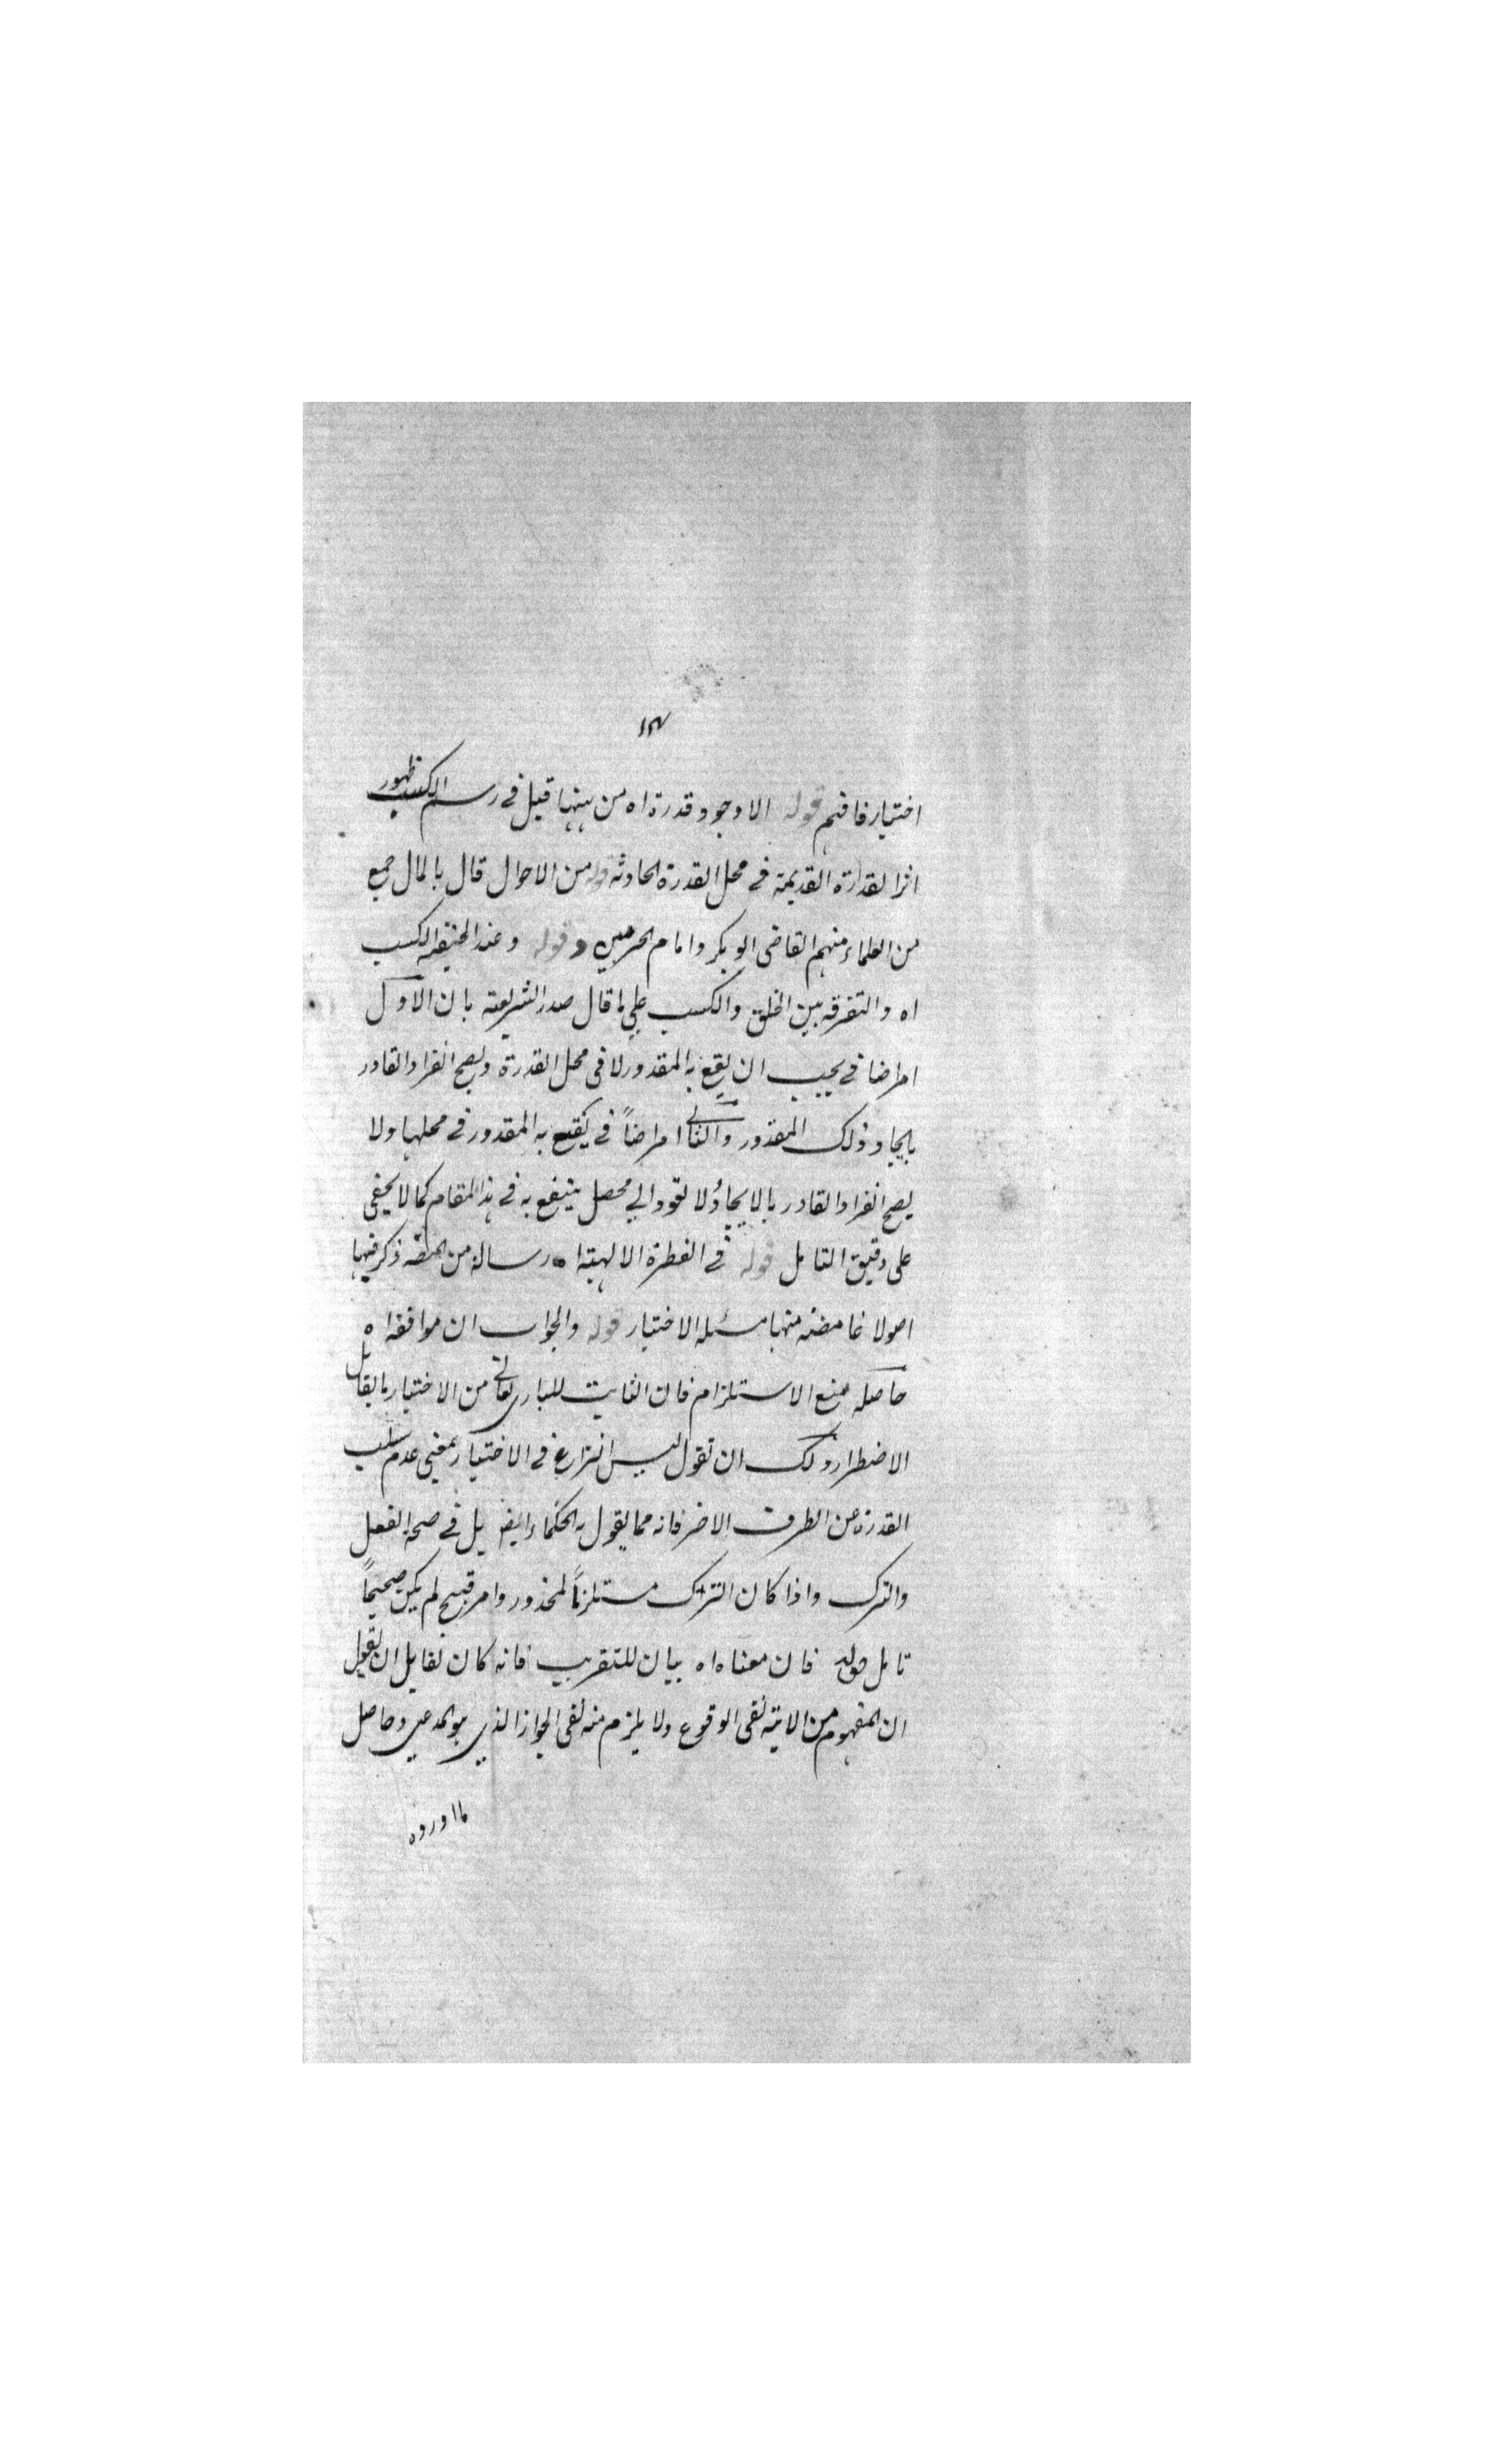 ١٣٧
اختيار فافهم قوله الا وجود قدرة اه من بينها قيل في رسم الكسب ظهور
اثر القدرة القديمة في محل القدرة الحادثة قوله من الاحوال قال بالمال جميع
من العلماء منهم القاضى ابو بكر وامام الحرمين وقوله وعند الحنيفة الكسب
اه والتفرقه بين الخلق والكسب على ما قال صدر الشريعة بان الاول
امر اضافي يجب ان يقع به المقدور لا في محل القدرة ويصح انفراد القادر
بايجاد ذلك المقدور والثاني امر اضافي يقع به المقدور في محلها ولا
يصح انفراد القادر بالايجاد ولا تعود الي محصل ينتفع به في هذا المقام كما لا يخفى
على دقيق التامل قوله في الفطرة الالهية اه رسالة من ذكر فيها
اصولا غامضه منها مسئله الاختيار قوله والجواب ان موافقه اه
حاصله منع الاستلزام فان الثابت للباري تعالى من الاختيار ما يقابل
الاضطرار ولك ان تقول ليس النزاع في الاختيار بمعنى عدم سلب
القدرة عن الطرف الاخر فانه مما يقول به الحكماء ايضا بل في صحة الفعل
والترك واذا كان الترك مستلزماً لمحذور وامر قبيح لم يكن صحيحاً
تامل قوله فان معناه اه بيان للتقريب فانه كان لقايل ان يقول
ان المفهوم من الاية نفى الوقوع ولا يلزم منه نفى الجواز الذي هو المدعى وحاصل
ما اورده